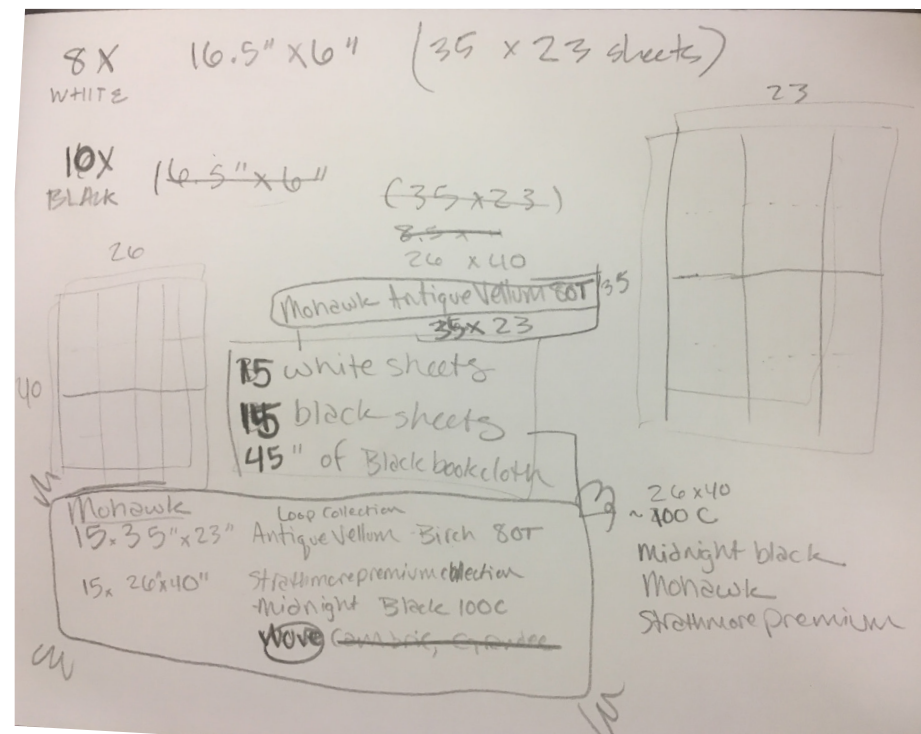 8X 16.5" X 6" (35 x 23 sheets)
WHITE
23
10X 16.5" x 6"
BLACK
(35 x 23)
8.5 x
26 26 x 40
Mohawk Antique Vellum 80T 35
35 x 23
15 white sheets
40
15 black sheets
45" of Black bookcloth
26 x 40
~ 100 C
Midnight black
Mohawk
Strathmore premium
Mohawk Loop Collection
15x 35" x 23" Antique Vellum - Birch 80T
15x 26" x 40" Strathmore premium collection
-Midnight Black 100C
Wove Cambric, Grandee